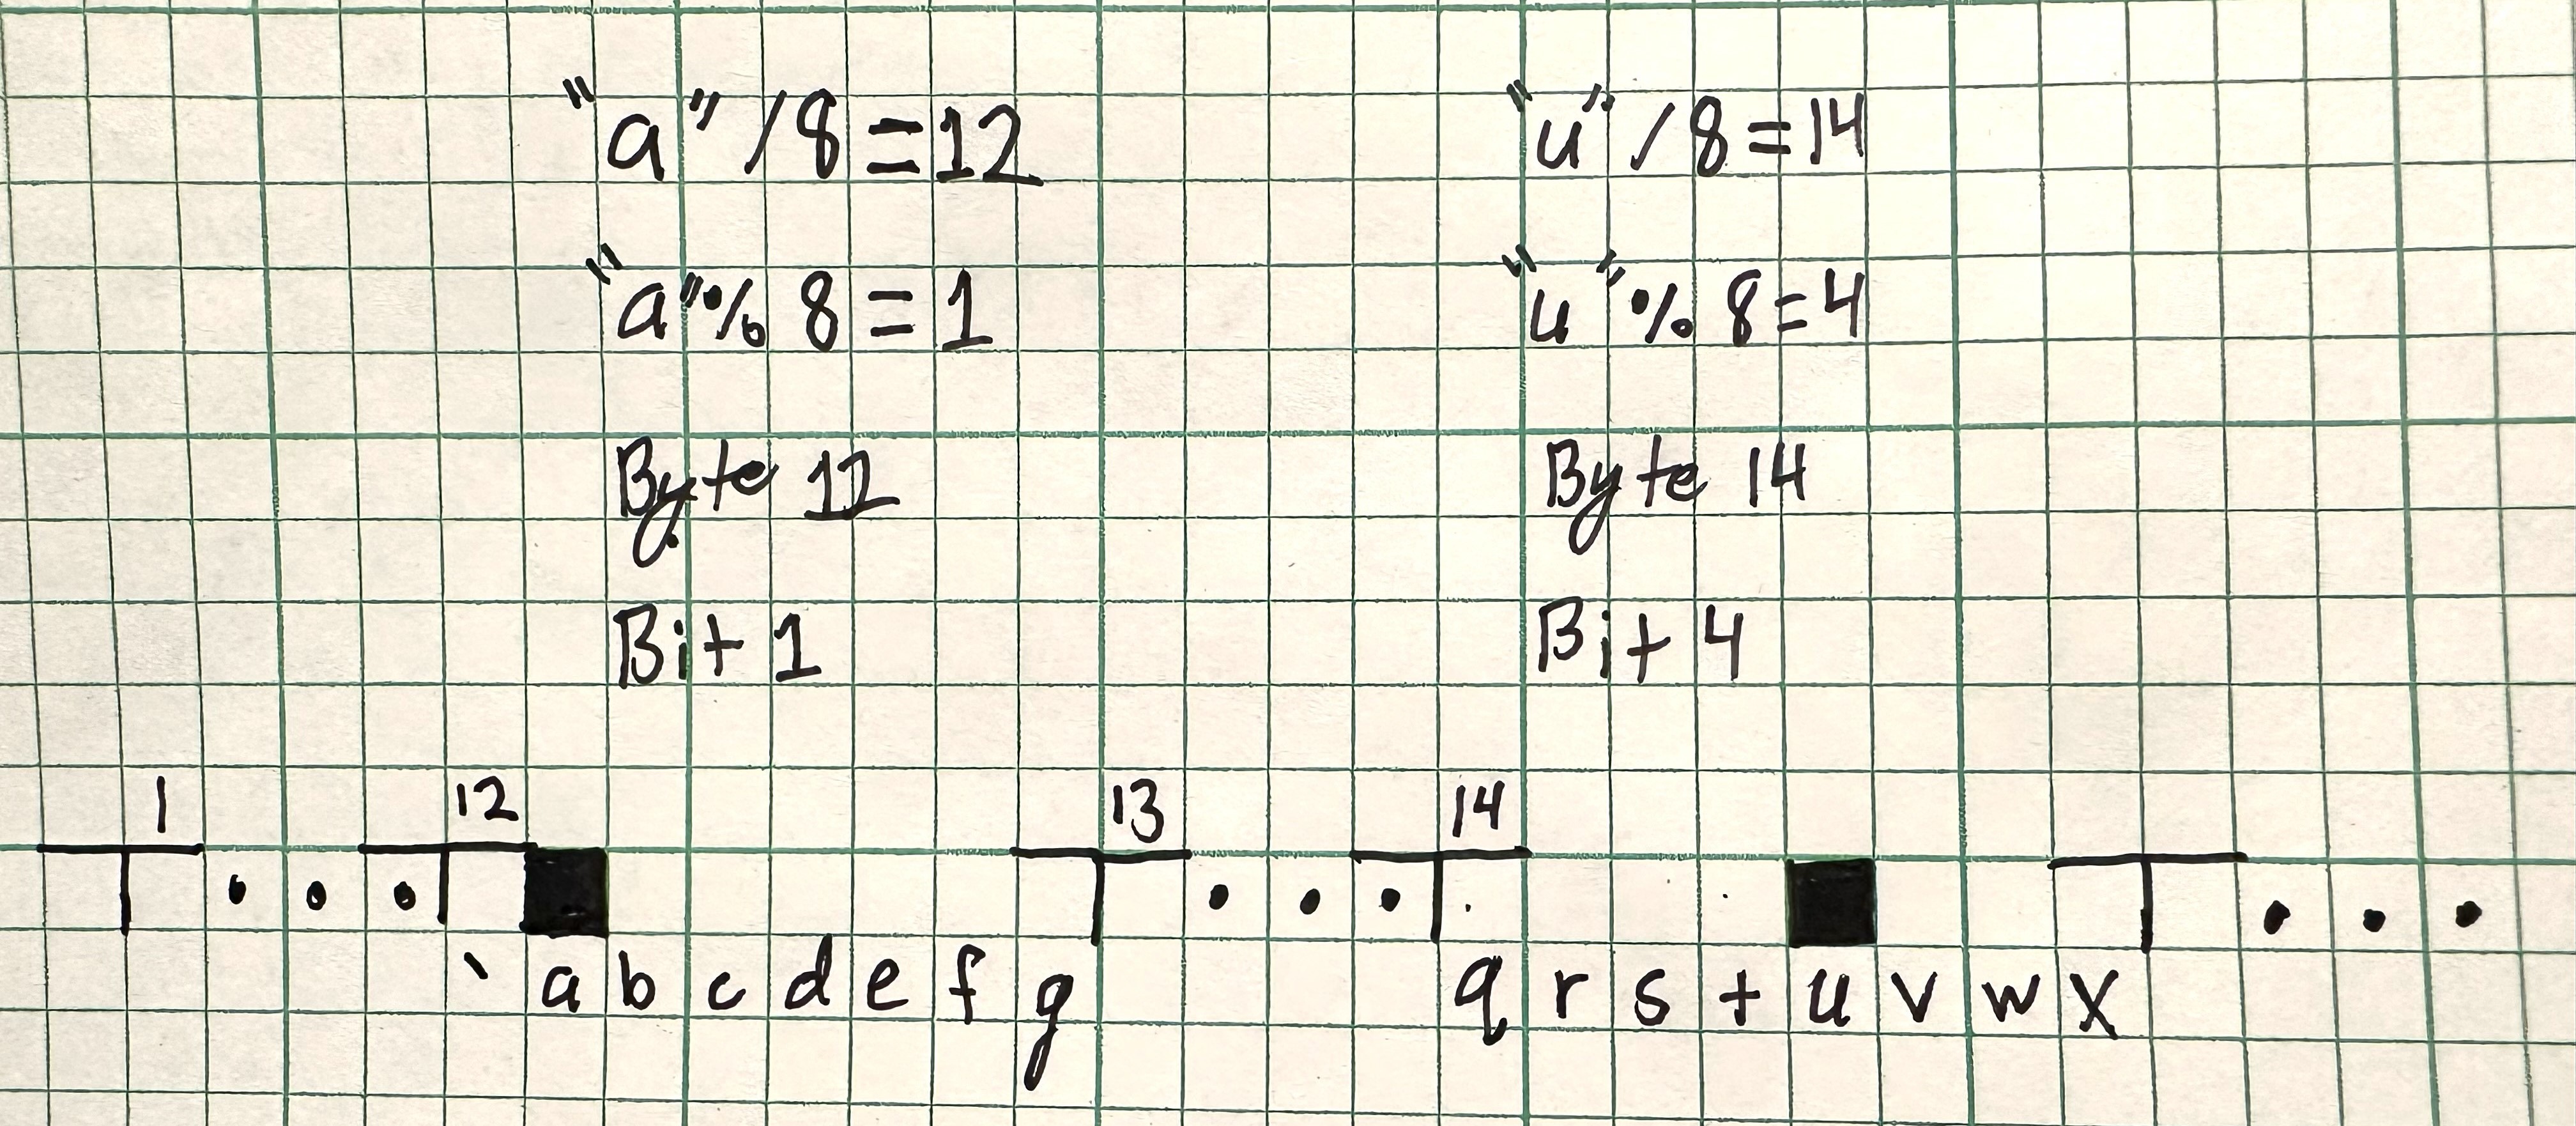 "a" /8=12
"u" /8=14
"a"% 8=1
"u"% 8=4
Byte 12
Byte 14
Bit 1
Bit 4
1 12 13 14
` a b c d e f g q r s t u v w x